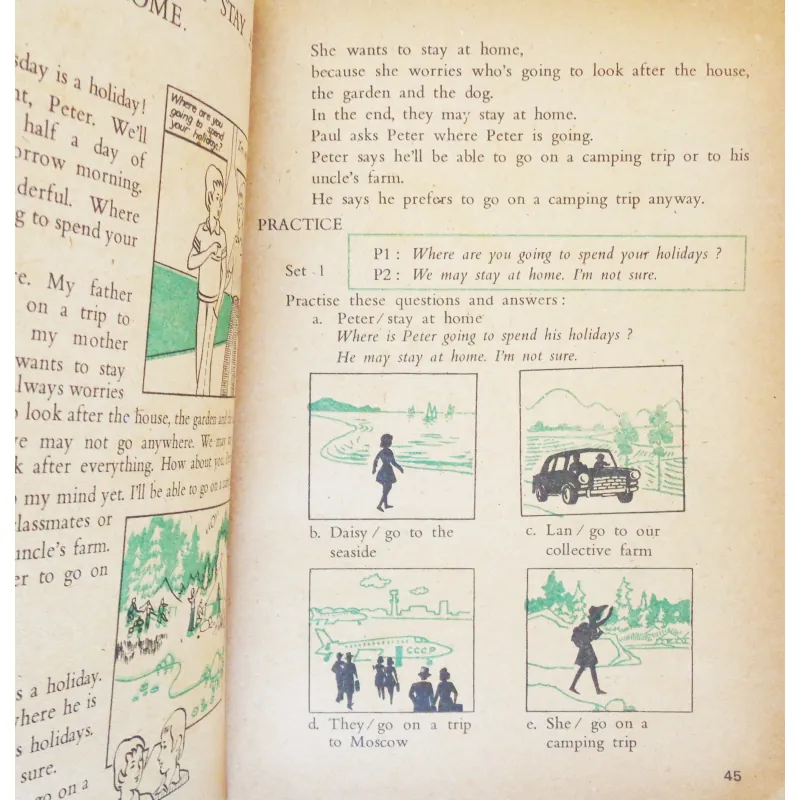 STAY
HOME.
sday is a holiday!
Peter. We'll
half a day of
morning.
Where
to spend your
My father
on a trip to
my mother
wants to stay
always worries
look after the house, the garden and
may not go anywhere. We may
after everything. How about you
my mind yet. I'll be able to go on a
classmates or
uncle's farm.
to go on
Where are you
going to spend
your holidays?
s a holiday.
where he is
s holidays.
sure.
go on a
She wants to stay at home,
because she worries who's going to look after the house,
the garden and the dog.
In the end, they may stay at home.
Paul asks Peter where Peter is going.
Peter says he'll be able to go on a camping trip or to his
uncle's farm.
He says he prefers to go on a camping trip anyway.
PRACTICE
Set 1
P1 : Where are you going to spend your holidays ?
P2 : We may stay at home. I'm not sure.
Practise these questions and answers :
a. Peter/ stay at home
Where is Peter going to spend his holidays ?
He may stay at home. I'm not sure.
b. Daisy / go to the
seaside
c. Lan / go to our
collective farm
CCCP
d. They / go on a trip
to Moscow
e. She / go on a
camping trip
45